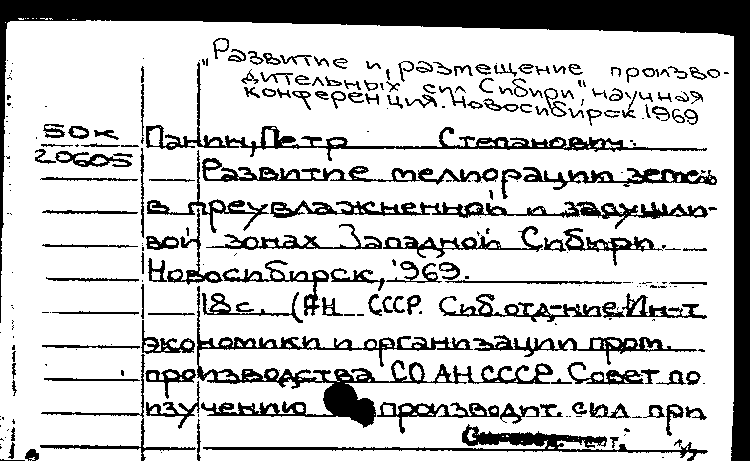 "Развитие и размещение произво-
дительных сил Сибири", научная
конференция. Новосибирск. 1969
50к Панин, Петр Степанович.
20605 Развитие мелиорации земель
в преувлажненной и засушли-
вой зонах Западной Сибири.
Новосибирск, 1969.
18 с. (АН СССР. Сиб. отд-ние. Ин-т
экономики и организации пром.
производства СО АН СССР. Совет по
изучению производит. сил при